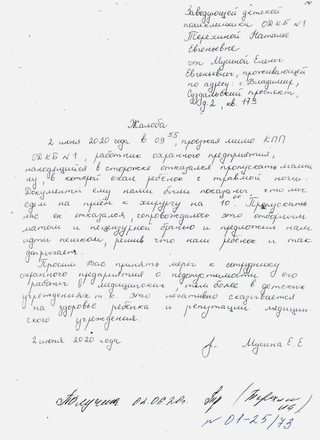 Заведующей детской
поликлиники ОДКБ №1
Терехиной Наталье
Евгеньевне
от Мушиной Елены
Евгеньевны, проживающей
по адресу: г. Владимир,
Суздальский проспект,
д. 2, кв. 173
Жалоба
2 июня 2020 года в 09 55, проезжая мимо КПП
ОДКБ №1, работник охранного предприятия,
находящийся в сторожке отказался пропускать маши
ну, в которой ехал ребенок с травмой ноги.
Документы ему нами были показаны, что мы
едем на прием к хирургу на 10.00 Пропускать
нас он отказался, сопровождалось это отборным
матом и нецензурной бранью и предложил нам
идти пешком, решив что наш ребенок и так
допрыгает.
Просим Вас принять меры к сотруднику
охранного предприятия о недопустимости его
работы в медицинских, тем более в детских
учреждениях, т к это негативно сказывается
на здоровье ребенка и репутации медицин
ского учреждения.
2 июня 2020 года Мушина Е. Е.
Получила 02.06.20г.
№ 01-25/73